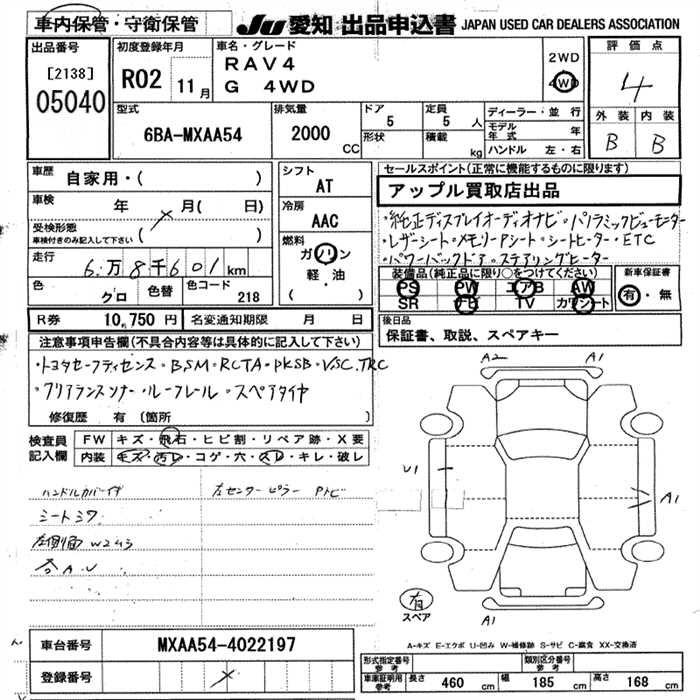 車内保管・守衛保管
JU 愛知 出品申込書 JAPAN USED CAR DEALERS ASSOCIATION
出品番号
[2138]
05040
初度登録年月
R02 11月
車名・グレード
RAV4
G 4WD
2WD
4WD
評価点
4
外装 内装
B B
型式
6BA-MXAA54
排気量
2000 CC
ドア
5
形状
定員
5 人
積載 kg
ディーラー・並行
モデル年式 年
ハンドル 左・右
車歴
自家用・( )
車検
年 月( 日)
受検形態
車検付きのみ記入して下さい ( )
走行
6万8千601km
色
クロ
色替
色コード
218
シフト
AT
冷房
AAC
燃料
ガソリン
軽・油
( )
セールスポイント(正常に機能するものに限ります)
アップル買取店出品
・純正ディスプレイオーディオナビ・パノラミックビューモニター
・レザーシート・メモリーPシート・シートヒーター・ETC
・パワーバックドア・ステアリングヒーター
装備品(純正品に限り○をつけてください)
PS PW エアB AW
SR ナビ TV カワシート
新車保証書
有・無
R券 10,750円
名変通知期限 月 日
後日品
保証書、取説、スペアキー
注意事項申告欄(不具合内容等は具体的に記入して下さい)
・トヨタセーフティセンス・BSM・RCTA・PKSB・VSC.TRC
・クリアランスソナー・ルーフレール・スペアタイヤ
修復歴 有(箇所 )
検査員記入欄
FW キズ・飛石・ヒビ割・リペア跡・X要
内装 キズ・汚レ・コゲ・穴・スレ・キレ・破レ
ハンドルカバーイタ
左センターピラー Pトビ
シートシワ
左側面 W2ムラ
各A.U
A2 A1
U1
A1
A1
有
スペア
A-キズ E-エクボ U-凹み W-補修跡 S-サビ C-腐食 XX-交換済
車台番号 MXAA54-4022197
登録番号
形式指定番号 参考
類別区分番号 参考
車庫証明用 参考
長さ 460 cm
幅 185 cm
高さ 168 cm